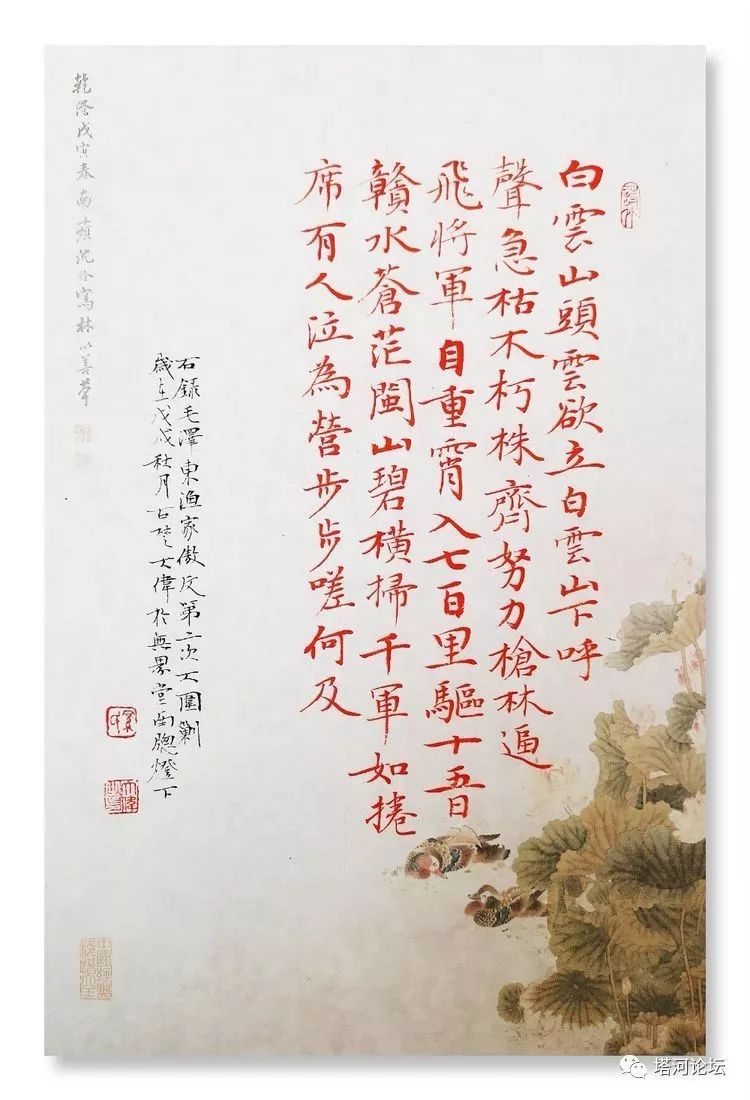 白雲山頭雲欲立白雲山下呼
聲急枯木朽株齊努力槍林逼
飛將軍自重霄入七百里驅十五日
贛水蒼茫閩山碧橫掃千軍如捲
席有人泣為營步步嗟何及
右録毛澤東漁家傲反第二次大圍剿
歲在戊戌秋月古大偉於無界堂南牕燈下
乾隆戊寅春南蘋沈銓寫林以善筆
塔河论坛